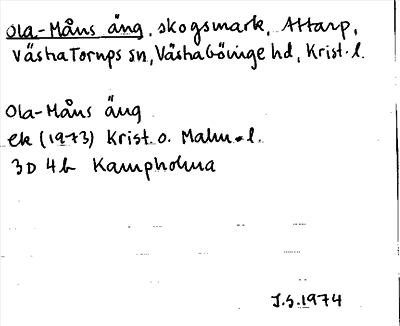 Ola-Måns äng, skogsmark, Attarp,
Västra Torups sn, Västra Göinge hd, Krist. l.
Ola-Måns äng
ek (1973) Krist. o. Malm. l.
3D 4b Kampholma
J.S. 1974